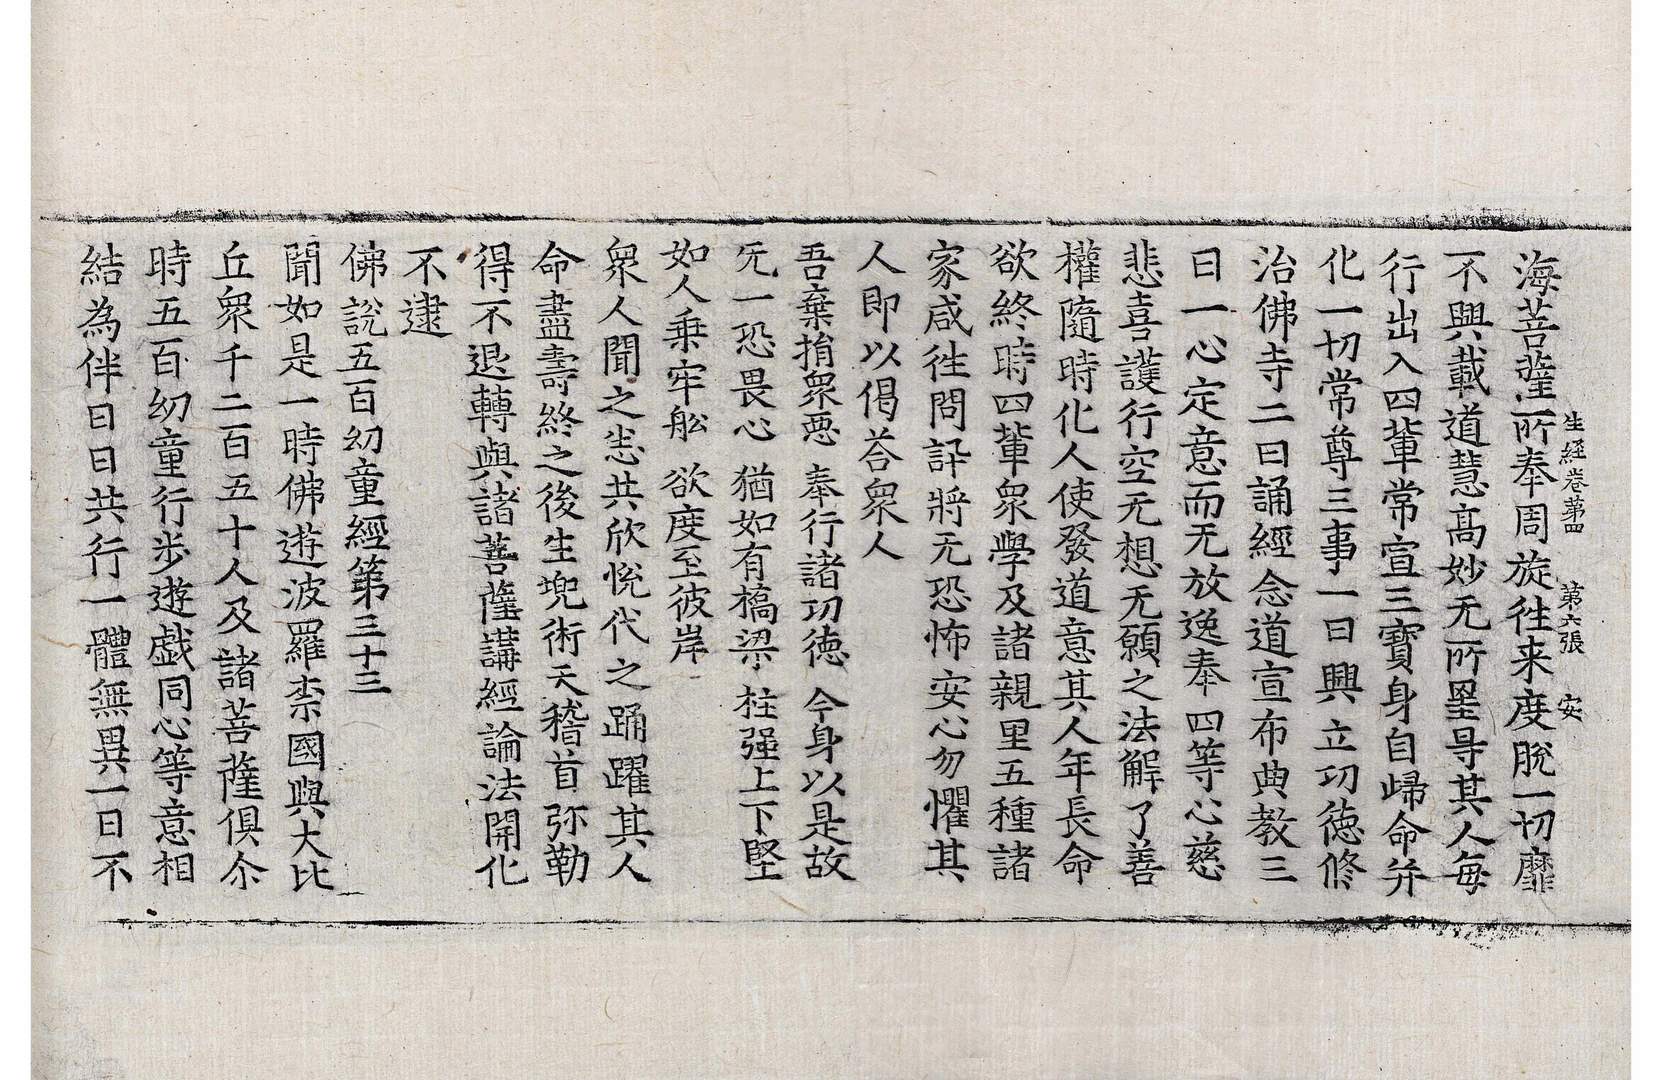 生經卷第四 第六張 安
海菩薩所奉周旋徃来度脫一切靡
不興載道慧高妙无所墨㝵其人每
行出入四軰常宣三寶身自歸命并
化一切常尊三事一曰興立功德修
治佛寺二曰誦經念道宣布典教三
曰一心定意而无放逸奉四等心慈
悲喜護行空无想无願之法解了善
權隨時化人使發道意其人年長命
欲終時四軰衆學及諸親里五種諸
家咸徃問訊將无恐怖安心勿懼其
人即以偈荅衆人
吾棄捐衆悪 奉行諸功德 今身以是故
旡一恐畏心 猶如有橋梁 柱强上下堅
如人乗牢舩 欲度至彼岸
衆人聞之悲共欣悅代之踊躍其人
命盡壽終之後生兜術天稽首弥勒
得不退轉與諸菩薩講經論法開化
不逮
佛說五百幼童經第三十三
聞如是一時佛遊波羅柰國與大比
丘衆千二百五十人及諸菩薩俱尒
時五百幼童行步遊戯同心等意相
結為伴日日共行一體無異一日不